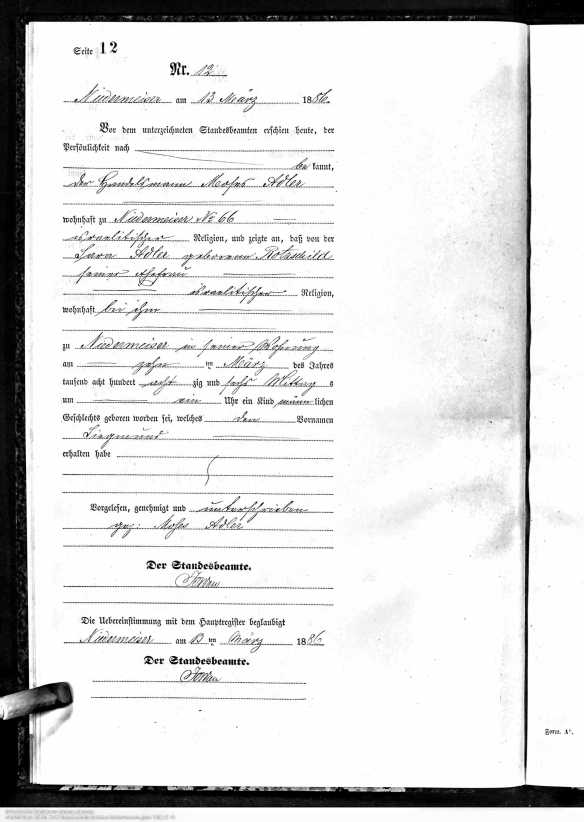 Seite 12
Nr. 12
Niedermeiser am 13 März 1886.
Vor dem unterzeichneten Standesbeamten erschien heute, der
Persönlichkeit nach
be kannt,
der Handelsmann Moses Adler
wohnhaft zu Niedermeiser No 66
israelitischer Religion, und zeigte an, daß von der
Sara Adler geborenen Rothschild
seiner Ehefrau
israelitischer Religion,
wohnhaft bei ihm
zu Niedermeiser in seiner Wohnung
am zehn ten März des Jahres
tausend acht hundert acht zig und sechs Mittag s
um ein Uhr ein Kind männ lichen
Geschlechts geboren worden sei, welches den Vornamen
Siegmund
erhalten habe
Vorgelesen, genehmigt und unterschrieben
gez: Moses Adler
Der Standesbeamte.
Die Uebereinstimmung mit dem Hauptregister beglaubigt
Niedermeiser am 13 ten März 1886
Der Standesbeamte.
Form. A¹.